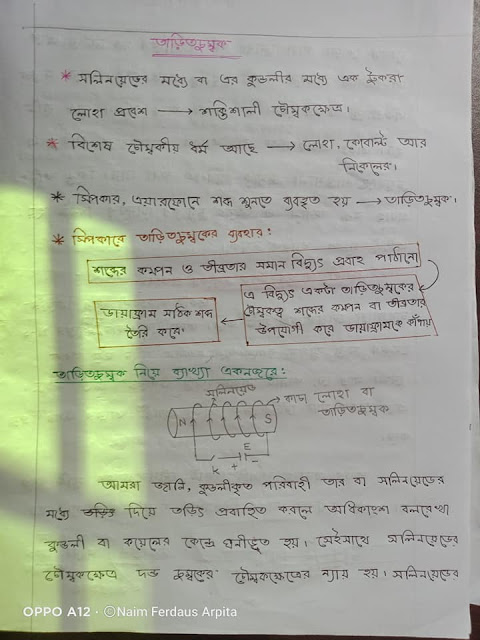 তাড়িতচুম্বক
* সলিনয়েডের মধ্যে বা এর কুন্ডলীর মধ্যে এক টুকরা
লোহা প্রবেশ → শক্তিশালী চৌম্বকক্ষেত্র।
* বিশেষ চৌম্বকীয় ধর্ম আছে → লোহা, কোবাল্ট আর
নিকেলের।
* স্পিকার, এয়ারফোনে শব্দ শুনতে ব্যবহৃত হয় → তাড়িতচুম্বক।
* স্পিকারে তাড়িতচুম্বকের ব্যবহার:
শব্দের কম্পন ও তীব্রতার সমান বিদ্যুৎ প্রবাহ পাঠানো
এ বিদ্যুৎ একটা তাড়িতচুম্বকের
চৌম্বকত্ব শব্দের কম্পন বা তীব্রতার
উপযোগী করে ডায়াফ্রামকে কাঁপায়
ডায়াফ্রাম সঠিক শব্দ
তৈরি করে।
তাড়িতচুম্বক নিয়ে ব্যাখ্যা একনজরে:
সলিনয়েড
কাচা লোহা বা
তাড়িতচুম্বক
N S
E
K + -
আমরা জানি, কুন্ডলীকৃত পরিবাহী তার বা সলিনয়েডের
মধ্যে দিয়ে তড়িৎ প্রবাহিত করলে অধিকাংশ বলরেখা
কুন্ডলী বা কয়েলের কেন্দ্রে ঘনীভূত হয়। সেইসাথে সলিনয়েডের
চৌম্বকক্ষেত্র দন্ড চুম্বকের চৌম্বকক্ষেত্রের ন্যায় হয়। সলিনয়েডের
OPPO A12 · ©Naim Ferdaus Arpita